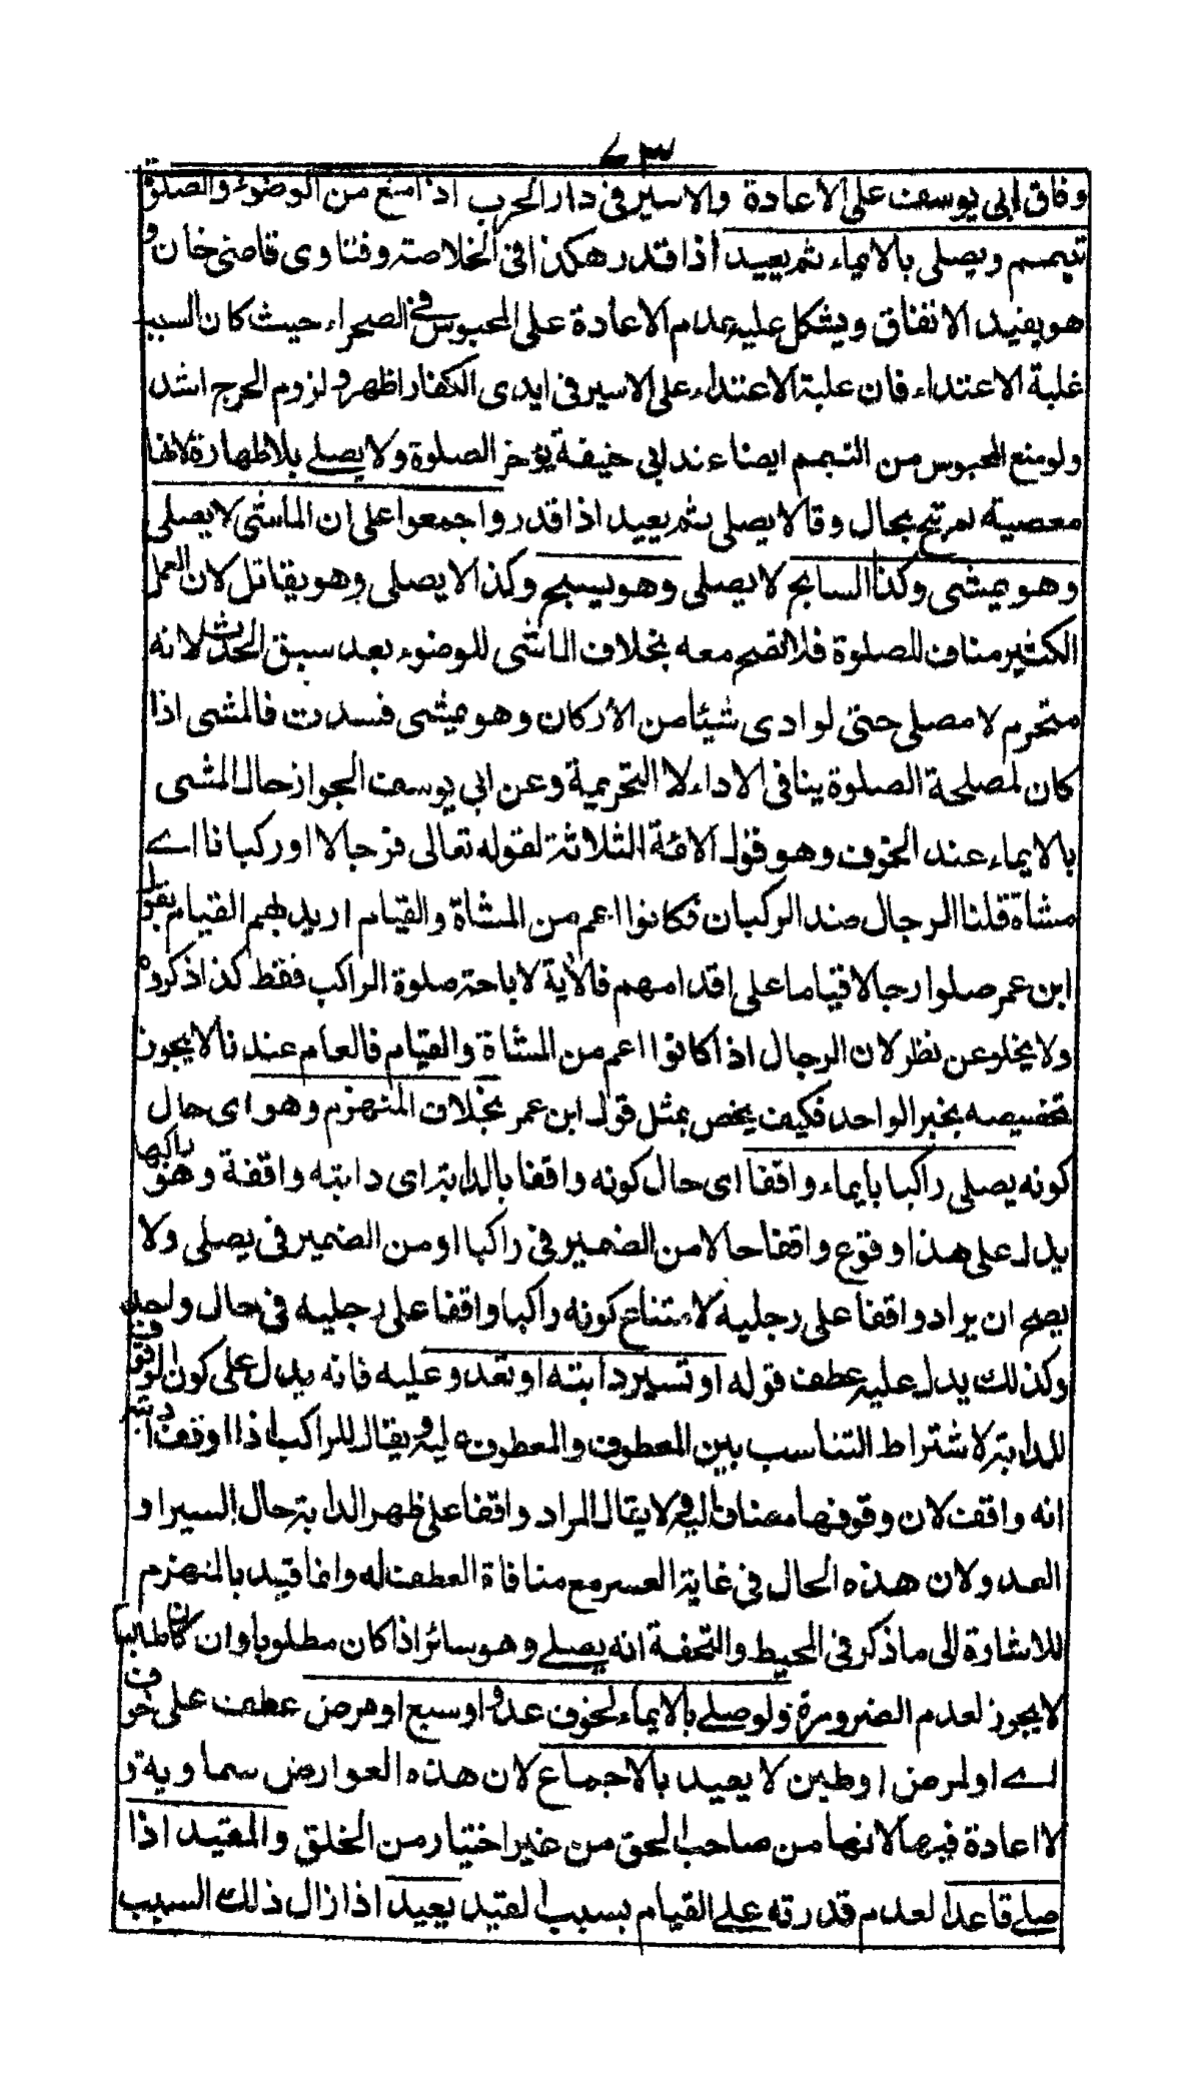 ٧٣
وفاق ابى يوسف على الاعادة والاسير فى دار الحرب اذا منع من الوضوء والصلوة
تيمم ويصلى بالايماء ثم يعيد اذا قدر هكذا فى الخلاصة وفتاوى قاضى خان و
هو يفيد الاتفاق ويشكل عليه عدم الاعادة على المحبوس فى الصحراء حيث كان السبب
غلبة الاعتداء فان علبة الاعتداء على الاسير فى ايدى الكفار اظهر ولزوم الحرج اشد
ولو منع المحبوس من التيمم ايضا عند ابى حنيفة يؤخر الصلوة ولا يصلے بلا طهارة لانها
معصية لم تبح بحال وقالا يصلى ثم يعيد اذا قدر واجمعوا على ان الماشى لا يصلى
وهو يمشى وكذا السابح لا يصلى وهو يسبح وكذا لا يصلى وهو يقاتل لان العمل
الكثير مناف للصلوة فلا تصح معه بخلاف الماشى للوضوء بعد سبق الحدث لانه
متحرم لا مصلى حتى لو ادى شيئا من الاركان وهو يمشى فسدت فالمشى اذا
كان لمصلحة الصلوة ينافى الاداء لا التحريمة وعن ابى يوسف الجواز حال المشى
بالايماء عند الخوف وهو قول الائمة الثلاثة لقوله تعالى فرجالا او ركبانا اے
مشاة قلنا الرجال ضد الركبان فكانوا اعم من المشاة والقيام اريد بهم القيام بقول
ابن عمر صلوا رجالا قياما على اقدامهم فالآية لاباحة صلوة الراكب فقط كذا ذكروه
ولا يخلو عن نظر لان الرجال اذا كانوا اعم من المشاة والقيام فالعام عندنا لا يجوز
تخصيصه بخبر الواحد فكيف يخص بمثل قول ابن عمر بخلاف المنهزم وهو اى حال
كونه يصلى راكبا بايماء واقفا اى حال كونه واقفا بالدابة اى دابته واقفة وهو راكبها
يدل على هذا وقوع واقفا حالا من الضمير فى راكبا او من الضمير فى يصلى ولا
يصح ان يراد واقفا على رجليه لامتناع كونه راكبا واقفا على رجليه فى حال واحد
وكذلك يدل عليه عطف قوله او تسير دابته او تعدو عليه فانه يدل على كون الوقوف
للدابة لاشتراط التناسب بين المعطوف والمعطوف عليه ويقال للراكب اذا اوقف دابته
انه واقف لان وقوفها مضاف اليه ولا يقال المراد واقفا على ظهر الدابة حال السير او
العد ولان هذه الحال فى غاية العسر مع منافاة العطف له وانما قيد بالمنهزم
للاشارة الى ما ذكر فى المحيط والتحفة انه يصلے وهو سائر اذا كان مطلوبا وان كان طالبا
لا يجوز لعدم الضرورة ولو صلے بالايماء لخوف عدو او سبع او مرض عطف على خوف
اے او لمرض او طين لا يعيد بالاجماع لان هذه العوارض سماوية و
لا اعادة فيها لانها من صاحب الحق من غير اختيار من الخلق والمقيد اذا
صلے قاعدا لعدم قدرته علے القيام بسبب القيد يعيد اذا زال ذلك السبب